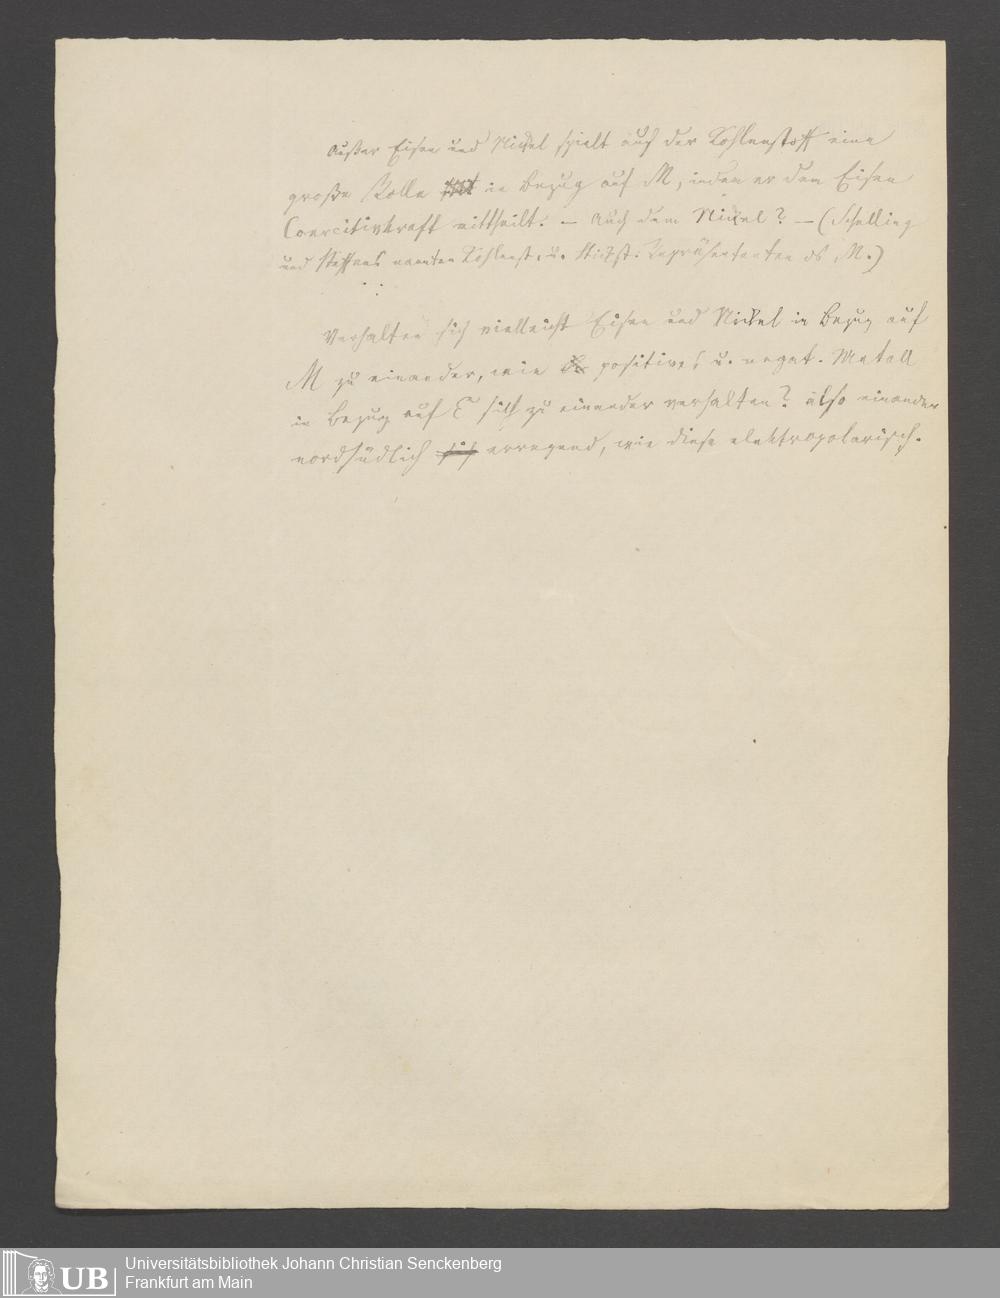 Außer Eisen und Nickel spielt auch der Kohlenstoff eine
große Rolle in Bezug auf M, indem er dem Eisen
Coercitivkraft mittheilt. – Auch dem Nickel? – (Schelling
und Steffens nannten Kohlenst. u. Stickst. Repräsentanten ds M.)
Verhalten sich vielleicht Eisen und Nickel in Bezug auf
M zu einander, wie positives u. negat. Metall
in Bezug auf E sich zu einander verhalten? also einander
nordsüdlich erregend, wie diese elektropolarisch.
Universitätsbibliothek Johann Christian Senckenberg
Frankfurt am Main
UB